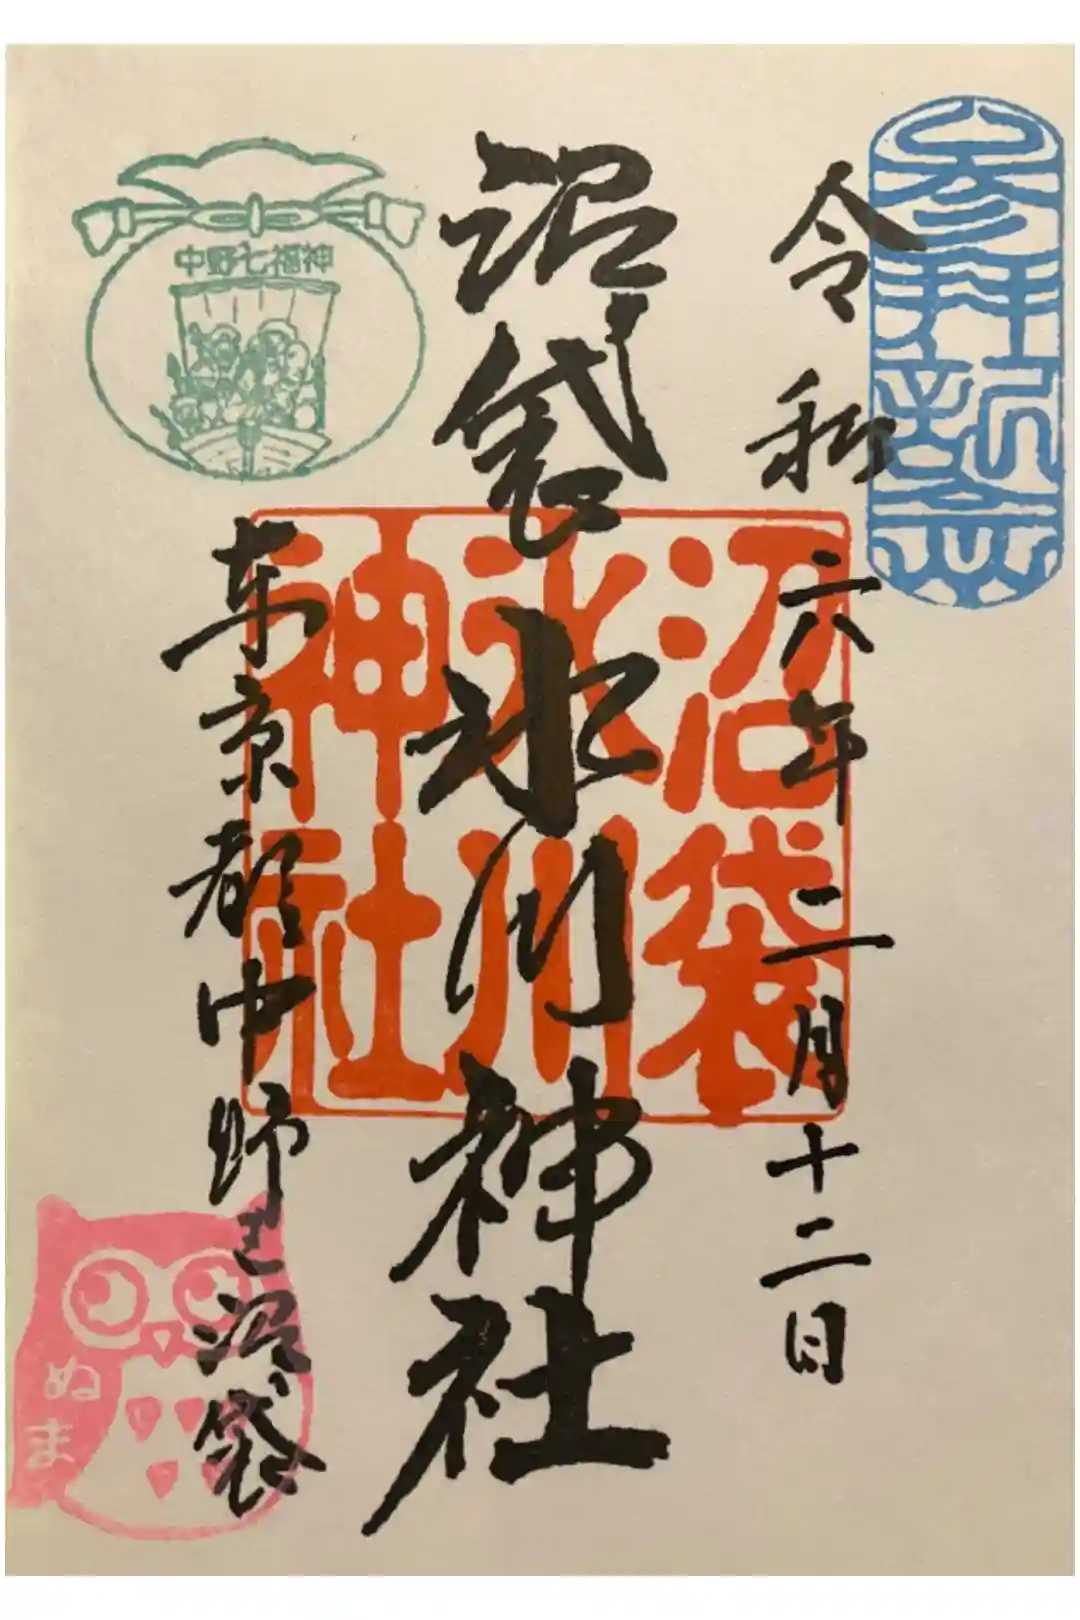 参拝祈念
令和六年二月十二日
沼袋氷川神社
沼袋
氷川
神社
中野七福神
東京都中野区沼袋
ぬま